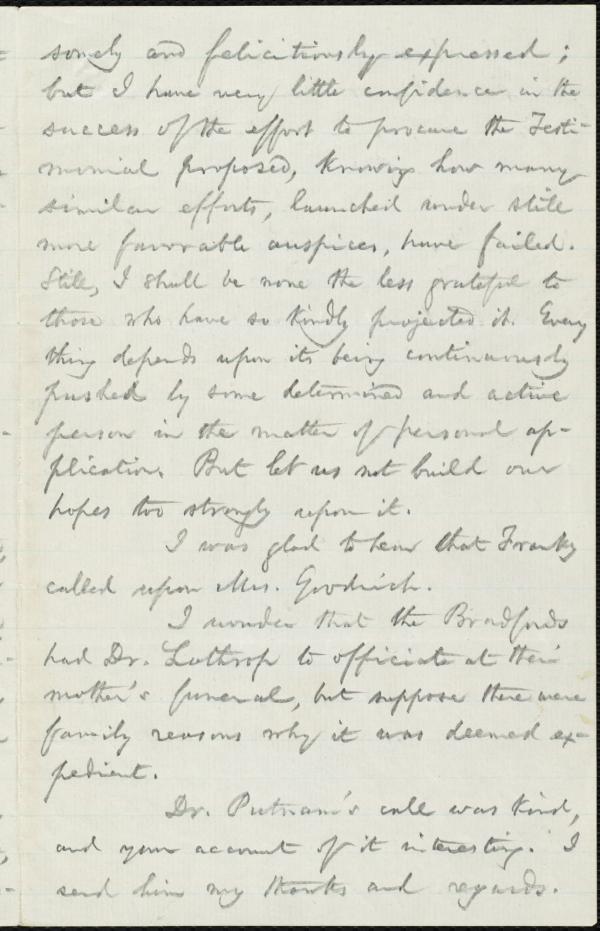 somely and felicitiously expressed;
but I have very little confidence in the
success of the effort to procure the Testi-
monial proposed, knowing how many
similar efforts, launched under still
more favorable auspices, have failed.
Still, I shall be none the less grateful to
those who have so kindly projected it. Every
thing depends upon its being continuously
pushed by some determined and active
person in the matter of personal ap-
plication. But let us not build our
hopes too strongly upon it.
I was glad to hear that Franky
called upon Mrs. Goodrich.
I wonder that the Bradfords
had Dr. Lothrop to officiate at their
mother's funeral, but suppose there were
family reasons why it was deemed ex-
pedient.
Dr. Putnam's call was kind,
and your account of it interesting. I
send him my thanks and regards.